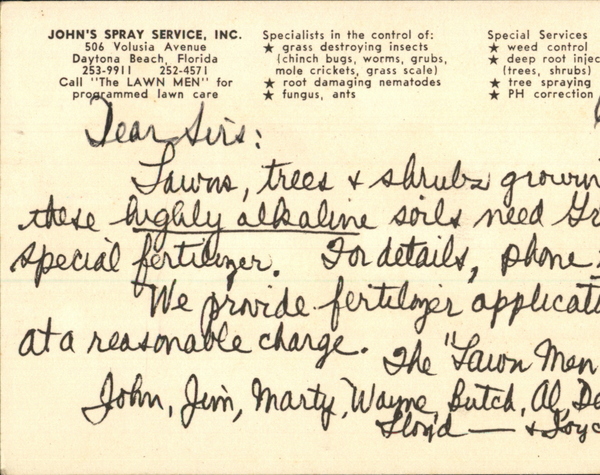 JOHN'S SPRAY SERVICE, INC.
506 Volusia Avenue
Daytona Beach, Florida
253-9911 252-4571
Call "The LAWN MEN" for
programmed lawn care
Specialists in the control of:
★ grass destroying insects
(chinch bugs, worms, grubs,
mole crickets, grass scale)
★ root damaging nematodes
★ fungus, ants
Special Services
★ weed control
★ deep root injec
(trees, shrubs)
★ tree spraying
★ PH correction
Dear Sirs:
Lawns, trees & shrubs growin
these highly alkaline soils need Gr
special fertilizer. For details, phone
We provide fertilizer applicati
at a reasonable charge.
The "Lawn Men
John, Jim, Marty, Wayne, Butch, Al, De
Lloyd — & Joyc